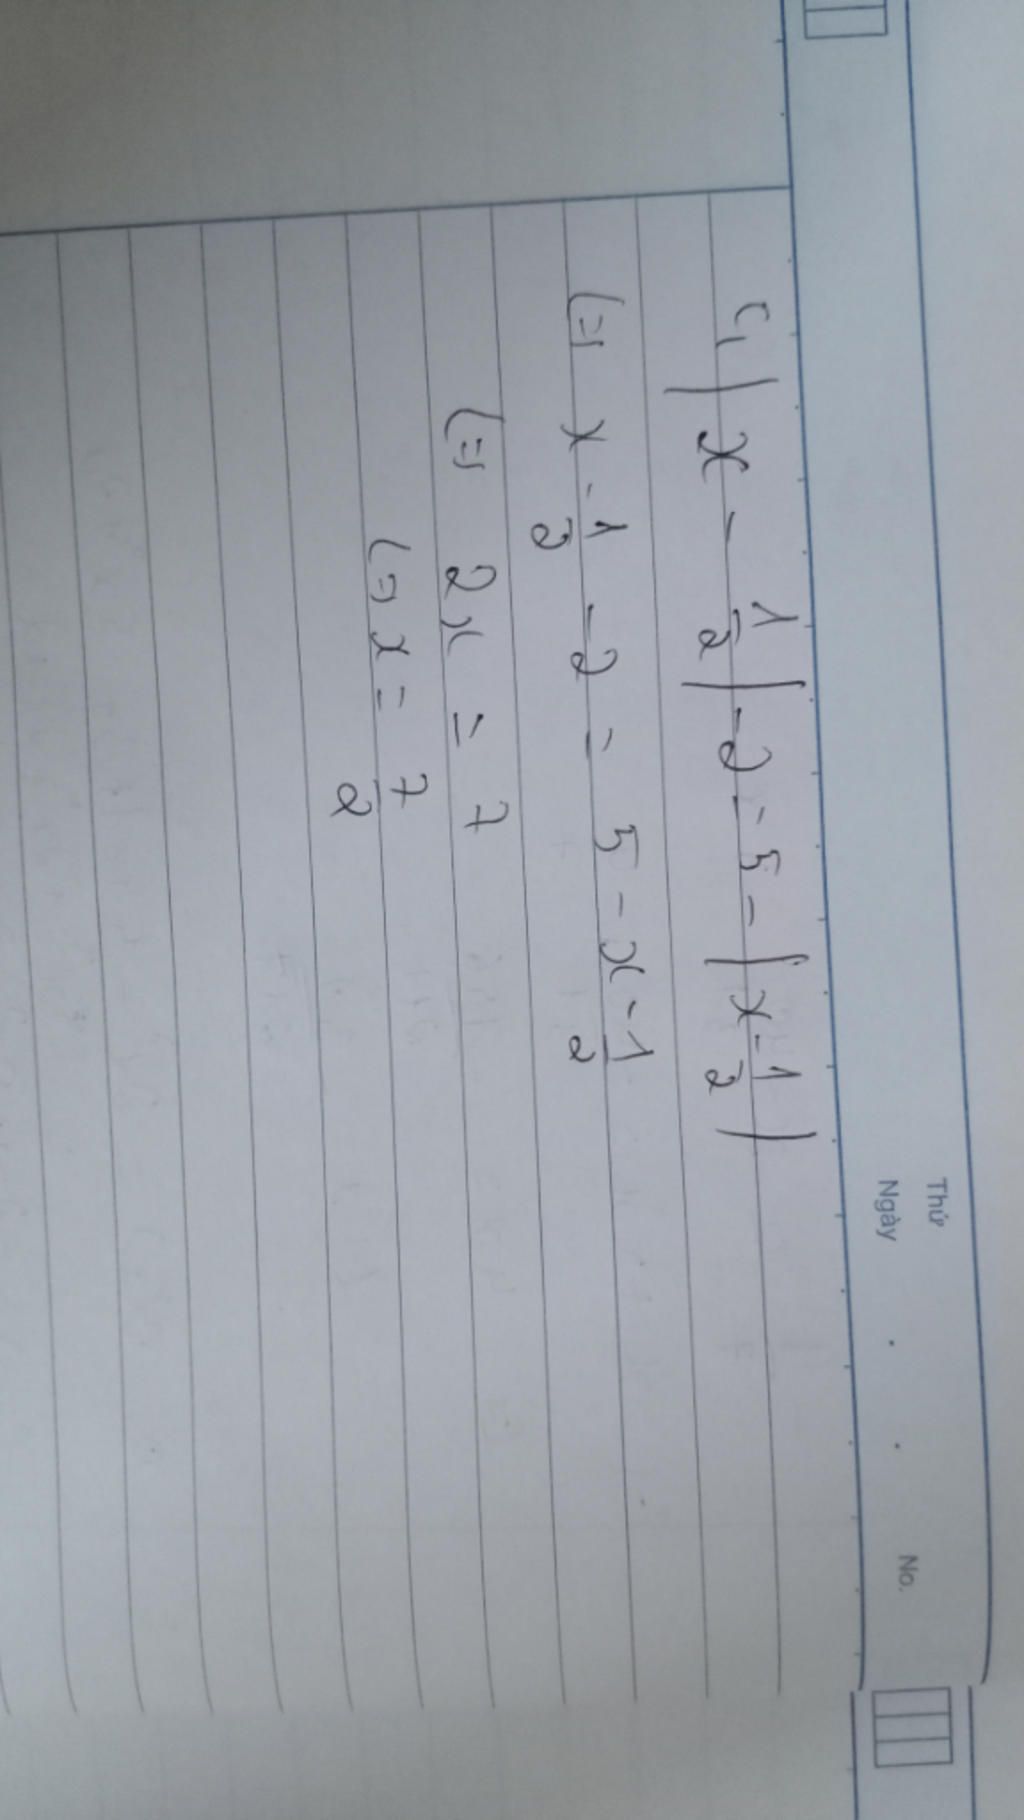 Thứ
Ngày . . No.
c, | x - 1/2 | - 2 = 5 - | x - 1/2 |
(=) x - 1/2 - 2 = 5 - x - 1/2
(=) 2x = 7
(=) x = 7/2